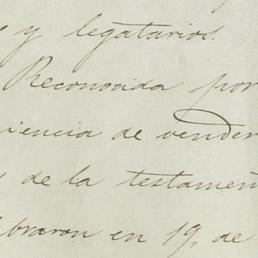 y legatarios.
Reconocida por
iencia de vender
de la testamen
braron en 19, de